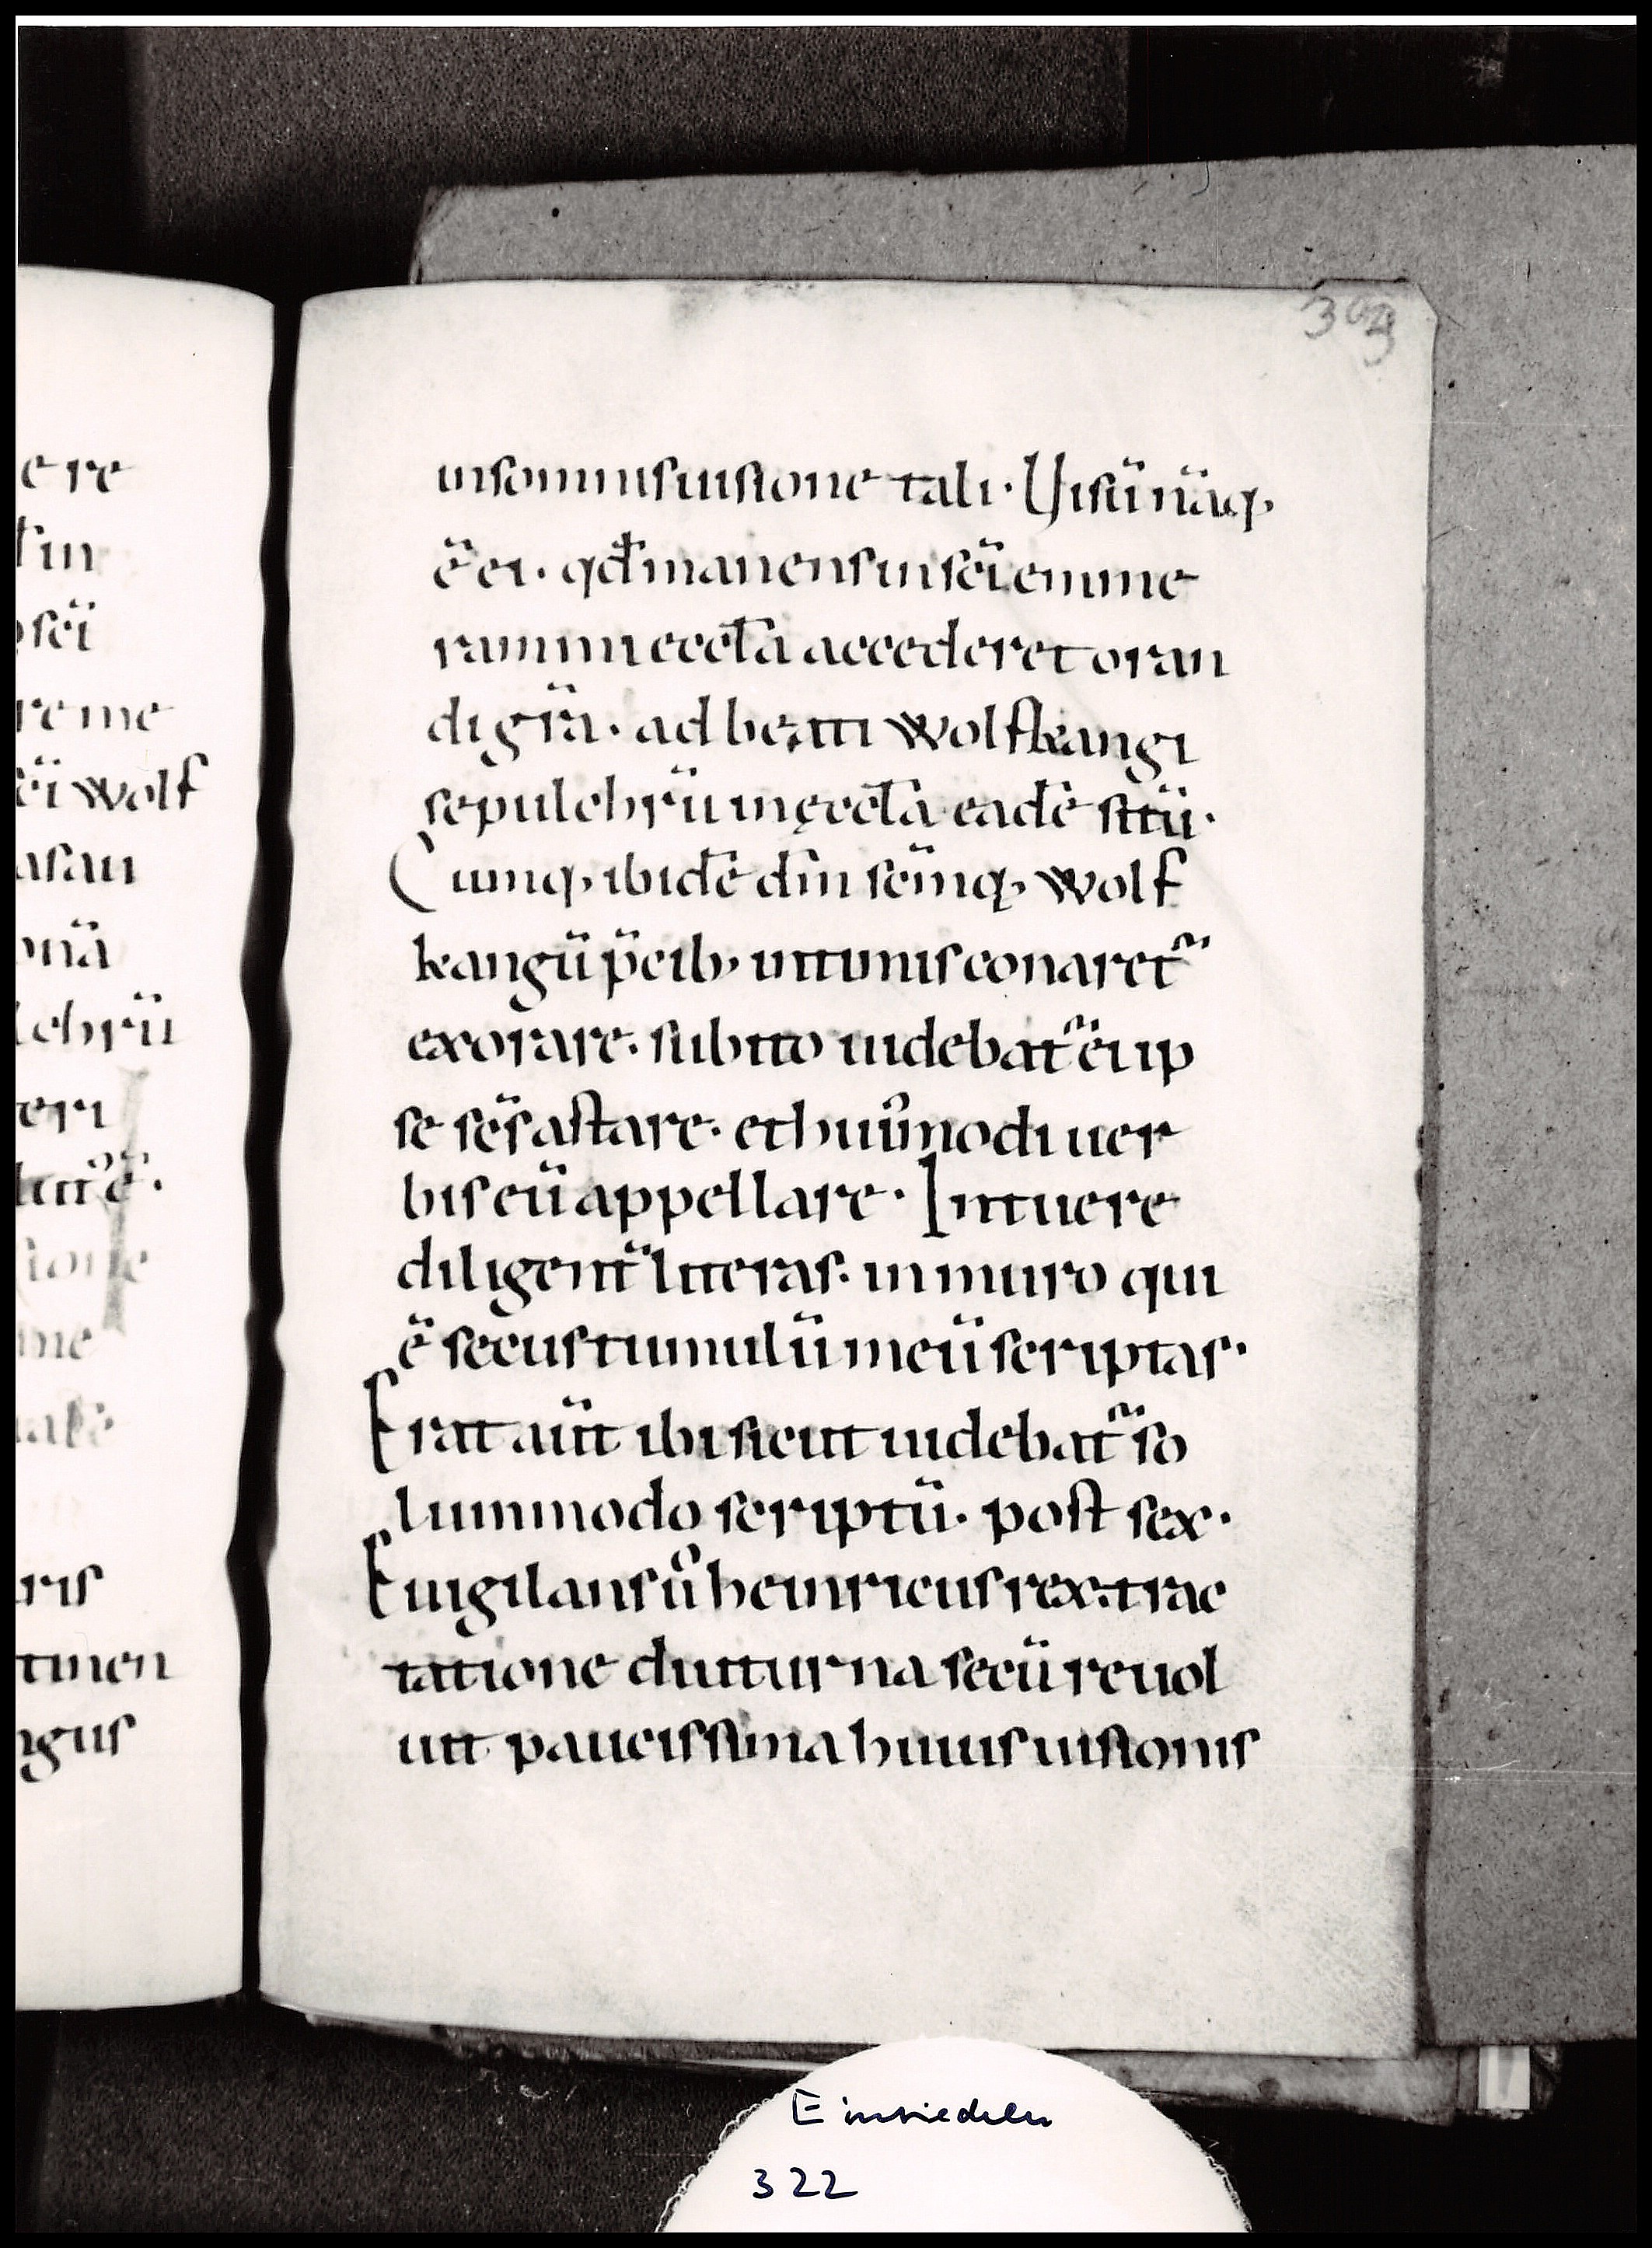 ere
in
sc̄i
reme
sc̄i wolf
asan
onā
lchrū
teri
ris
tinen
gus
393
insomnis uisione tali· Uisū nāq;
ē ei· qđ manens in sc̄i emme
rammi eccła accederet oran
di gr̄a· ad beati wolfkangi
sepulchrū in ęccła eadē sitū·
Cumq; ibidē dn̄i sc̄mq; wolf
kangū p̄cib; uti unis conaret᷑
exorare· subito uidebat᷑ ei ip
se sc̄s astare· et huiꝰmodi uer
bis eū appellare· Intuere
diligent᷑ literas· in muro qui
ē secus tumulū meū scriptas·
Erat aūt ibi sicut uidebat᷑ so
lummodo scriptū· post sex·
Euigilans ū heinricus rex· trac
tatione diuturna secū reuol
uit paucissima huius uisionis
Einsiedeln
322